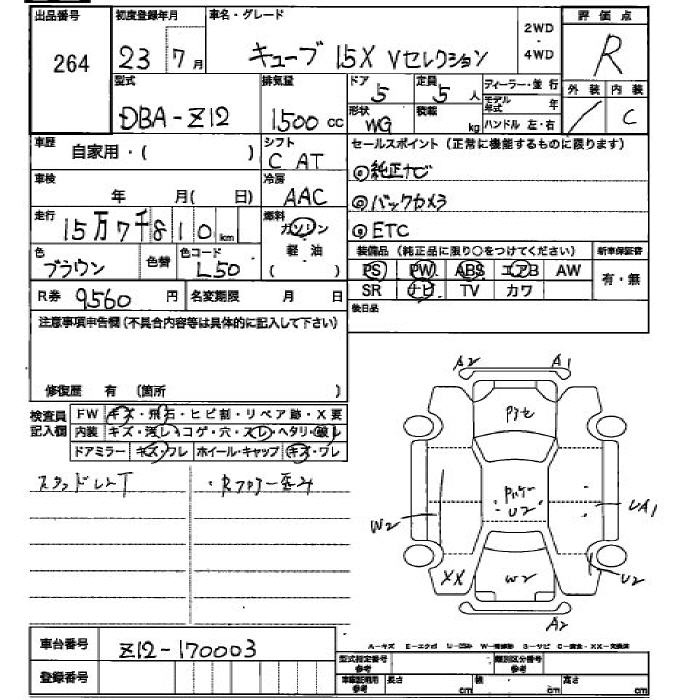 出品番号 初度登録年月 車名・グレード 2WD 評価点
264 23 7月 キューブ 15X Vセレクション ・ R
4WD
型式 排気量 ドア 定員 ディーラー・並行 外装 内装
DBA-Z12 1500cc 5 5人 モデル年式 年 / C
形状 積載 ハンドル 左・右
WG kg
車歴 自家用・( ) シフト C AT セールスポイント(正常に機能するものに限ります)
◎純正ナビ
車検 年 月(日) 冷房 AAC
◎バックカメラ
走行 15万7千810km 燃料 ガソリン
◎ETC
軽油
( )
色 ブラウン 色替 色コード L50 装備品(純正品に限り○をつけてください) 新車保証書
PS PW ABS エアB AW 有・無
R券 9560円 名変期限 月 日 SR ナビ TV カワ
注意事項申告欄(不具合内容等は具体的に記入して下さい) 後日品
修復歴 有 (箇所 )
A2 A1
検査員記入欄 FW キズ・飛石・ヒビ割・リペア跡・X要
内装 キズ・汚レ・コゲ・穴・スレ・ヘタリ・破レ
ドアミラー キズ・ワレ ホイール・キャップ キズ・ワレ
スタッドレスT ・Rフロアー歪み
U2
W2 UA1
XX W2 U2
A2
車台番号 Z12-170003
A-キズ E-エクボ U-凹み W-補修跡 S-サビ C-腐食 XX-交換済
登録番号 型式指定番号 参考 類別区分番号 参考
車庫証明用 参考 長さ cm 巾 cm 高さ cm